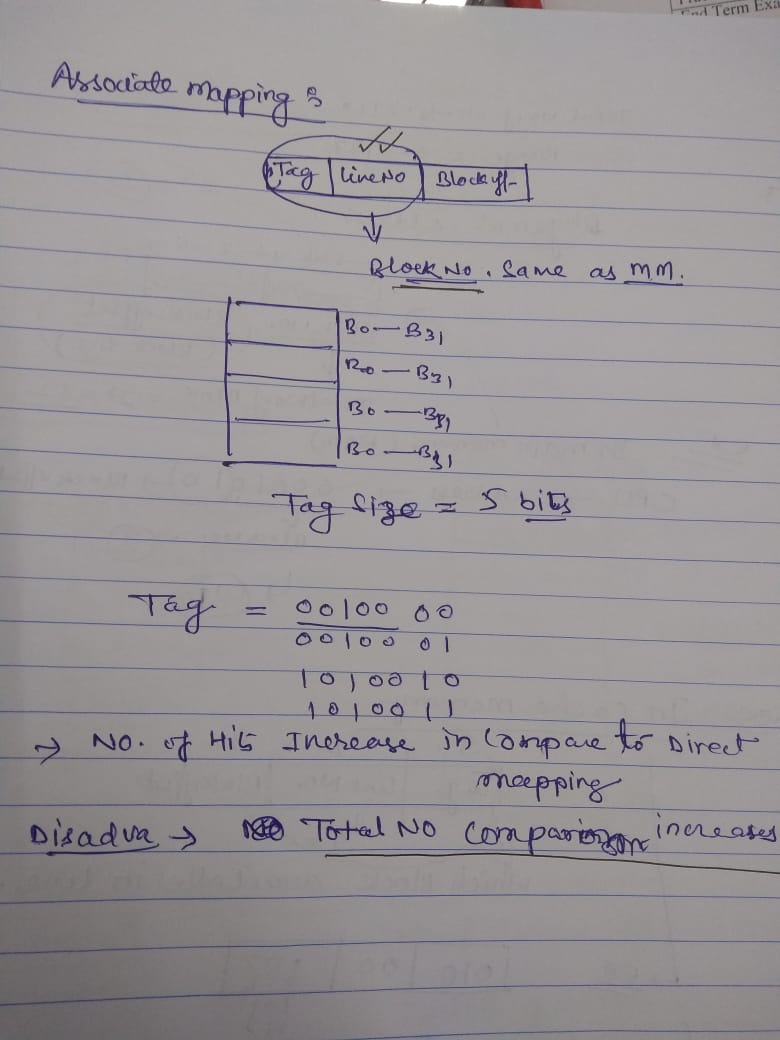 End Term Exa
Associate mapping :
Tag | Line No | Block off-
Block No. Same as MM.
B0 — B31
B0 — B31
B0 — B31
B0 — B31
Tag Size = 5 bits
Tag = 00100 00
00100 01
10100 10
10100 11
→ No. of Hits Increase in Compare to Direct
mapping
Disadva → Total No Comparison increases